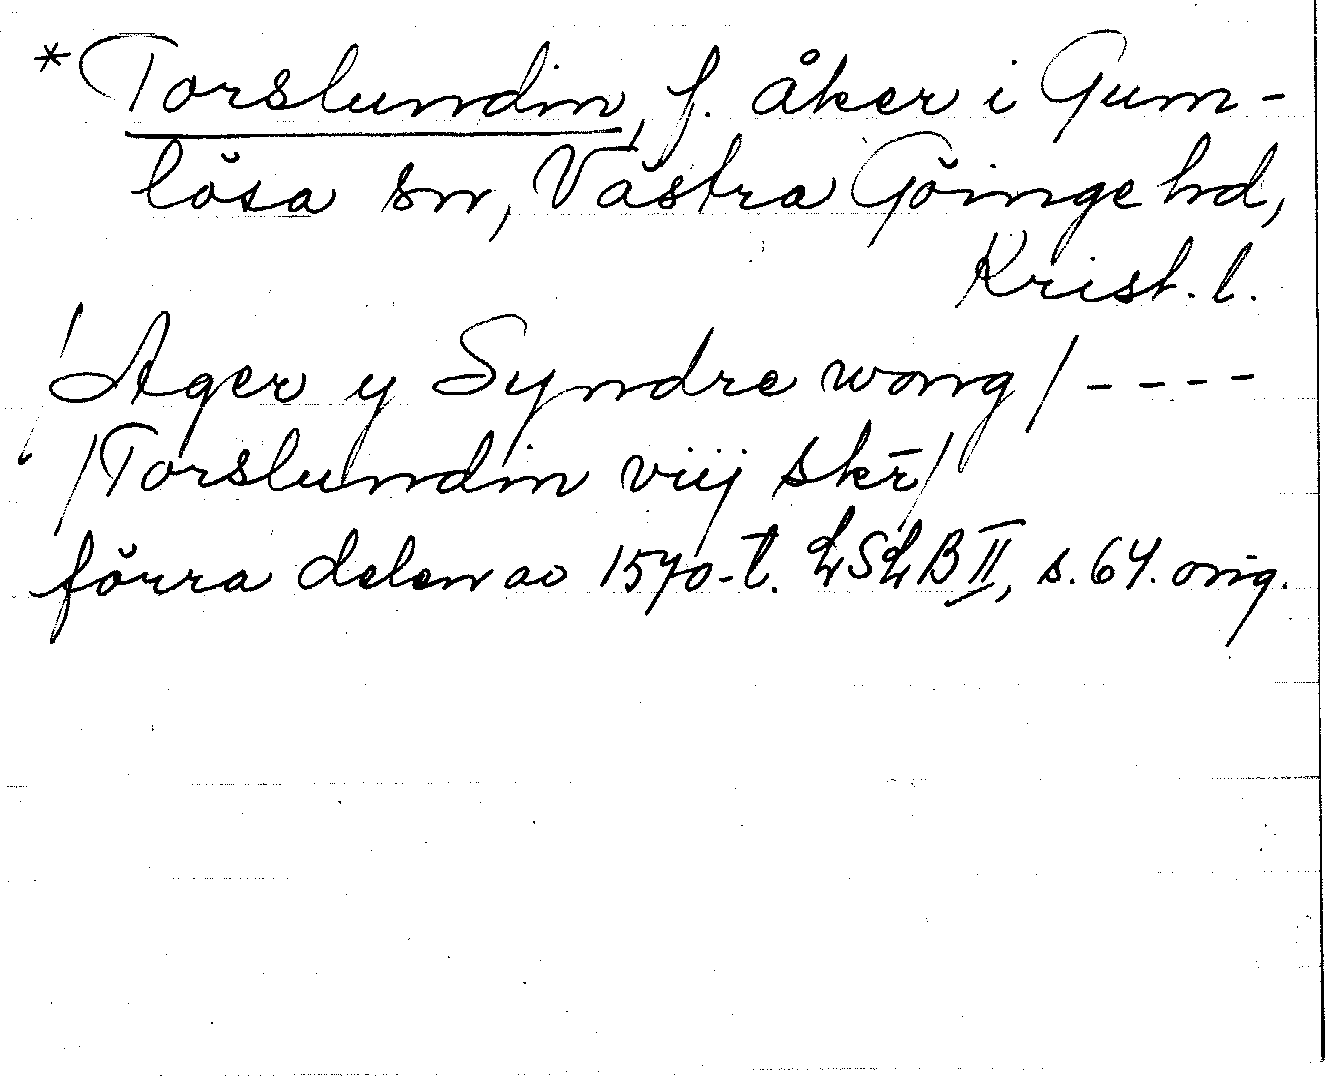 * Torslundin, f. åker i Gum-
lösa sn, Västra Göinge hd,
Krist. l.
/Ager y Syndre wong/ - - - -
/Torslundin viij skr̄/
förra delen av 1570-t. LSLB II, s. 64. orig.